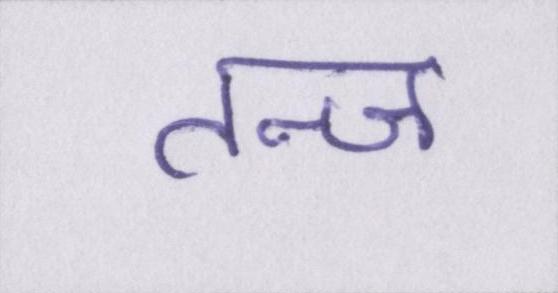 तन्ज